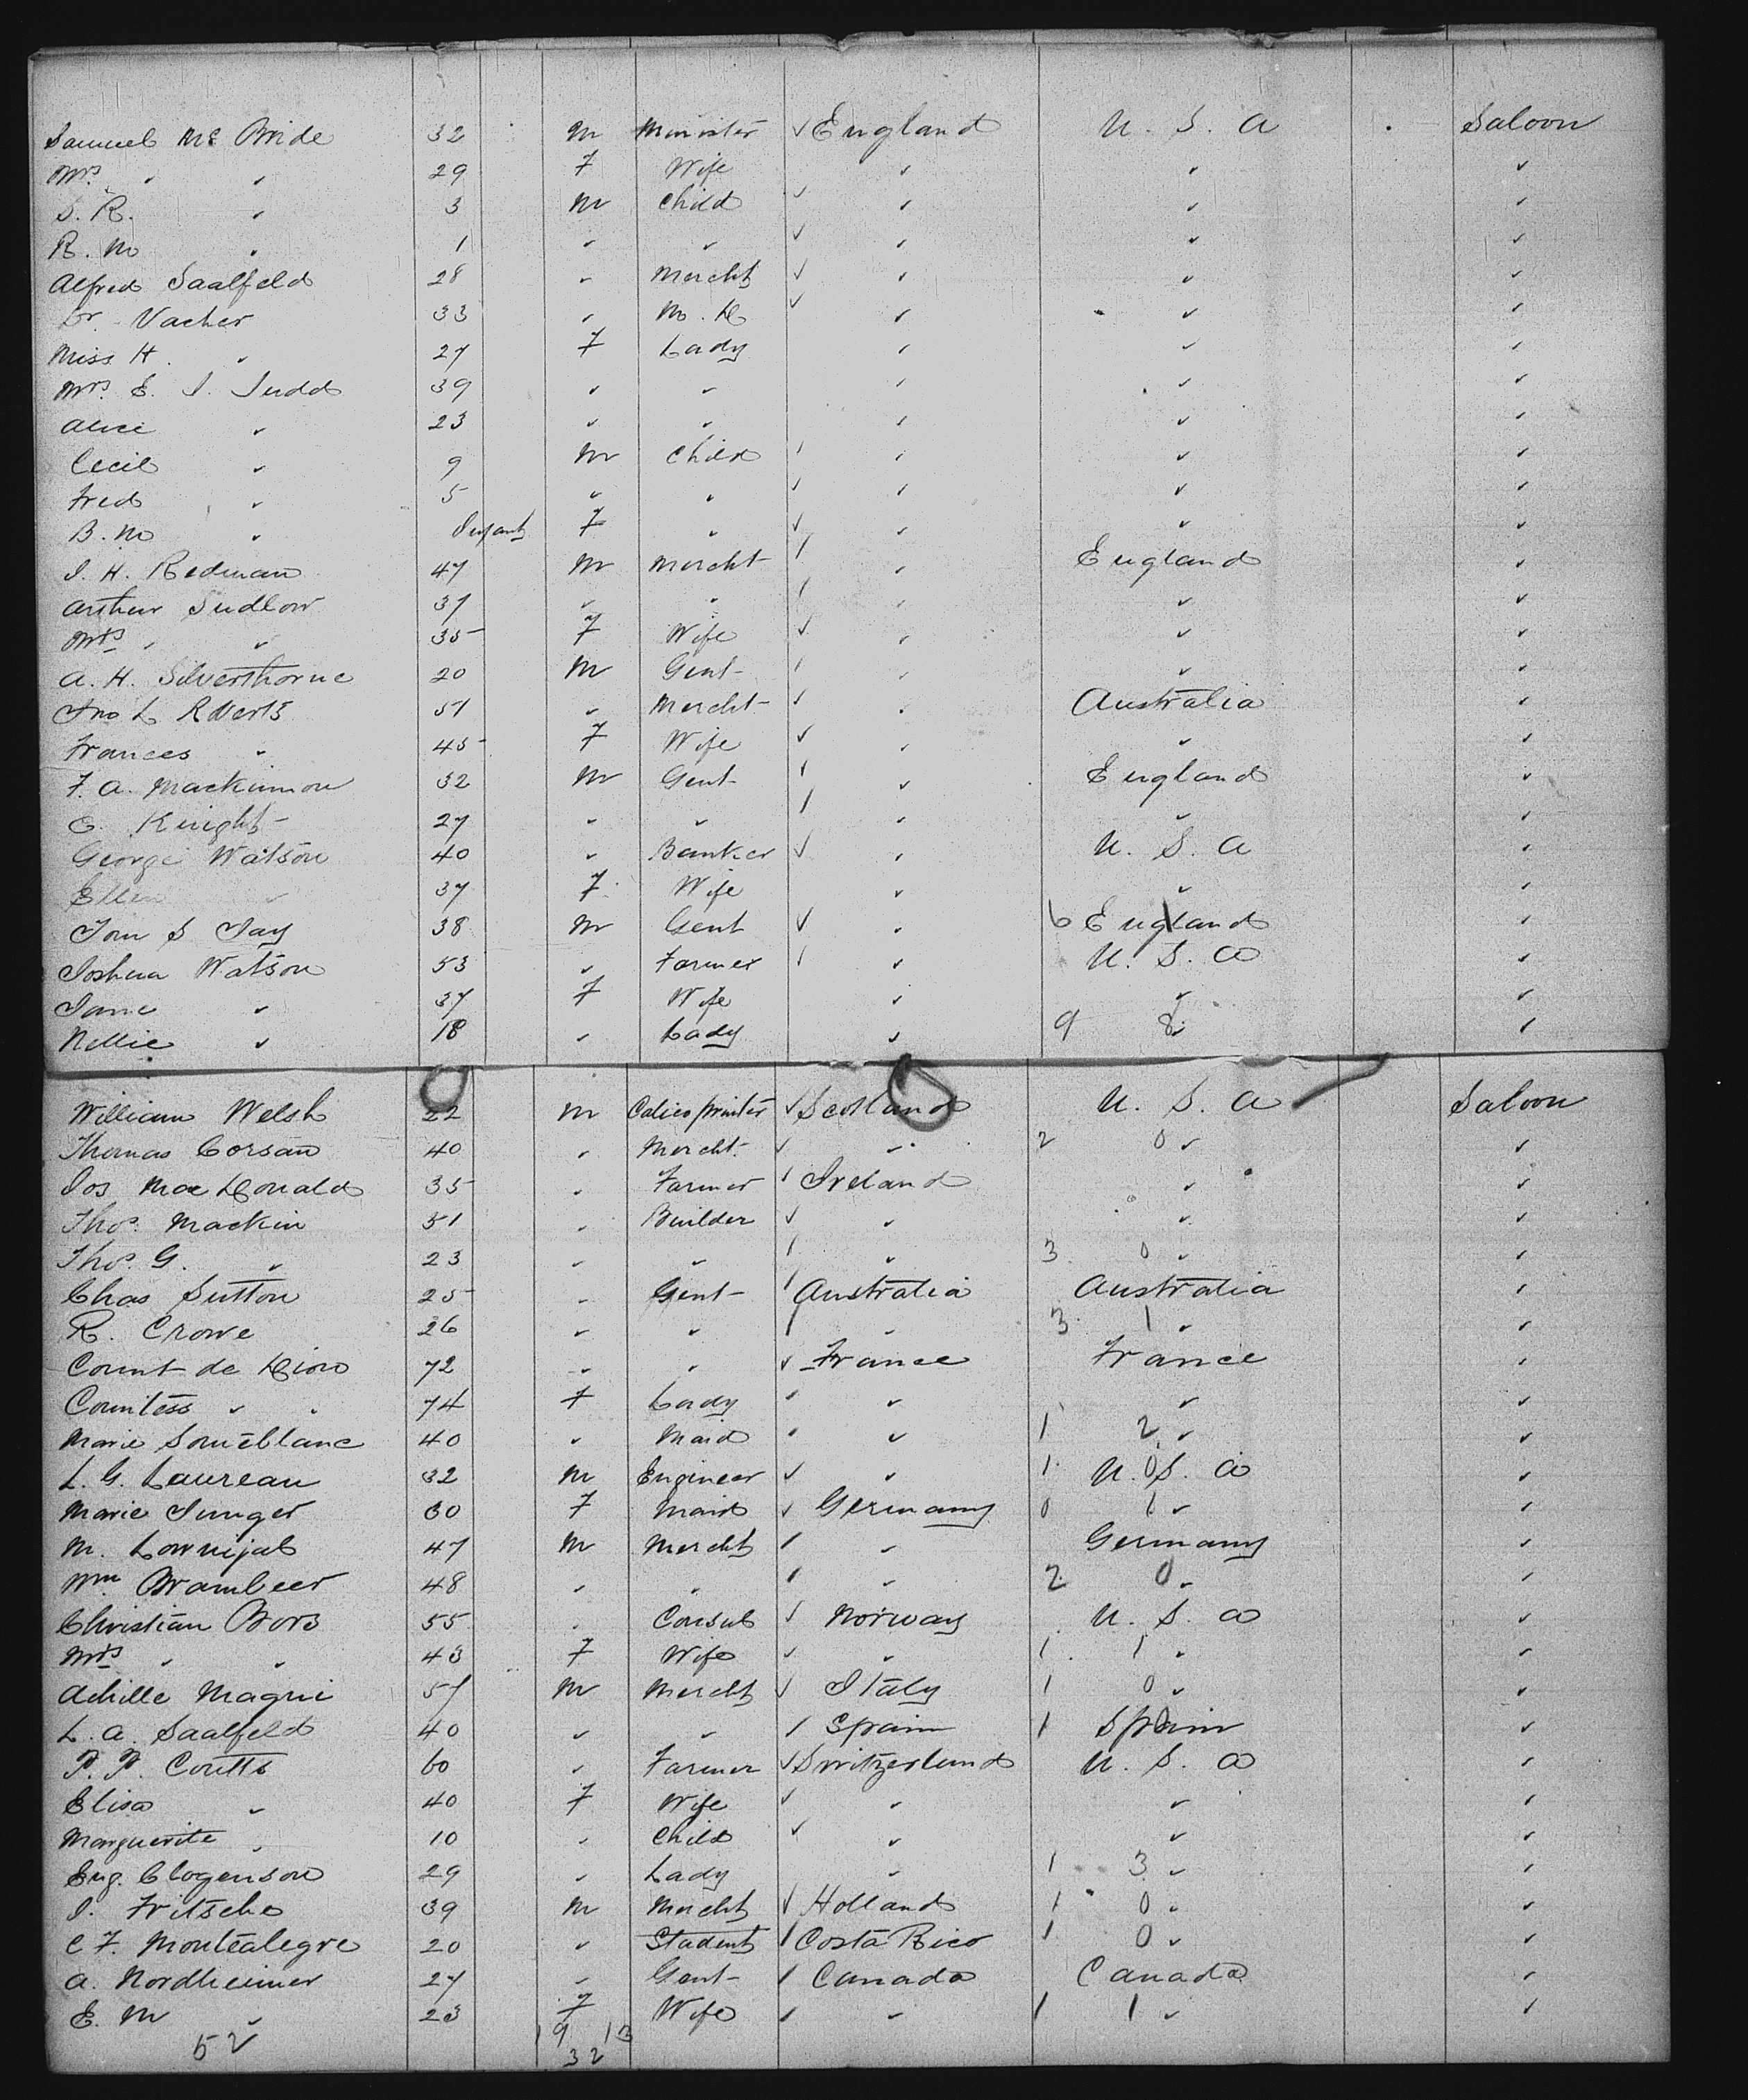 Samuel Mc Bride 32 M Minister ✓ England U. S. A Saloon
Mrs ✓ ✓ 29 F Wife ✓ ✓ ✓
S. R. ✓ 3 M Child ✓ ✓ ✓ ✓
R. M ✓ 1 ✓ ✓ ✓ ✓ ✓ ✓
Alfred Saalfeld 28 ✓ Mercht ✓ ✓ ✓ ✓
Dr. Vacher 33 ✓ M. D ✓ ✓ ✓ ✓
Miss H. ✓ 27 F Lady ✓ ✓ ✓
Mrs. E. J. Judd 39 ✓ ✓ ✓ ✓ ✓
Alice ✓ 23 ✓ ✓ ✓ ✓ ✓
Cecil ✓ 9 M Child / ✓ ✓ ✓
Fred ✓ 5 ✓ ✓ ✓ ✓ ✓ ✓
B. M ✓ Infant F ✓ ✓ ✓ ✓ ✓
J. H. Redman 47 M Mercht / ✓ England ✓
Arthur Sudlow 37 ✓ ✓ / ✓ ✓ ✓
Mrs ✓ ✓ 35 F Wife ✓ ✓ ✓ ✓
A. H. Silverthorne 20 M Gent / ✓ ✓ ✓
Jno L Roberts 51 ✓ Mercht / ✓ Australia ✓
Frances ✓ 45 F Wife ✓ ✓ ✓ ✓
F. A. Mackinnon 32 M Gent / ✓ England ✓
E. Knight 27 ✓ ✓ / ✓ ✓ ✓
George Watson 40 ✓ Banker ✓ ✓ U. S. A ✓
Ellen ✓ 37 F Wife ✓ ✓ ✓
Tom S Jay 38 M Gent ✓ ✓ 6 England ✓
Joshua Watson 53 ✓ Farmer / ✓ U. S. A ✓
Jane ✓ 37 F Wife ✓ ✓ ✓
Nellie ✓ 18 ✓ Lady ✓ 9 8 ✓ ✓
William Welsh 22 M Calico printer ✓ Scotland U. S. A Saloon
Thomas Corsan 40 ✓ Mercht. ✓ ✓ 2 0 ✓ ✓
Jos Mac Donald 35 ✓ Farmer / Ireland ✓ ✓
Thos. Mackin 51 ✓ Builder ✓ ✓ ✓ ✓
Thos. G. ✓ 23 ✓ ✓ / ✓ 3 0 ✓ ✓
Chas Sutton 25 ✓ Gent / Australia Australia ✓
R. Crowe 26 ✓ ✓ / ✓ 3 1 ✓ ✓
Count de Dion 72 ✓ ✓ ✓ France France ✓
Countess ✓ ✓ 74 F Lady / ✓ ✓ ✓
Marie 40 ✓ Maid / ✓ 1 2 ✓ ✓
L. G. Laureau 32 M Engineer ✓ ✓ 1 0 U. S. A ✓
Marie Junger 30 F Maid ✓ Germany 0 1 ✓ ✓
M. 47 M Mercht / ✓ Germany ✓
Wm Brambeer 48 ✓ ✓ / ✓ 2 0 ✓ ✓
Christian Bors 55 ✓ Consul ✓ Norway U. S. A ✓
Mrs ✓ ✓ 43 F Wife ✓ ✓ 1 1 ✓ ✓
Achille Magni 57 M Mercht ✓ Italy 1 0 ✓ ✓
L. A. Saalfeld 40 ✓ ✓ / Spain 1 0 Spain ✓
P. P. Coutts 60 ✓ Farmer ✓ Switzerland U. S. A ✓
Elisa ✓ 40 F Wife ✓ ✓ ✓ ✓
Marguerite ✓ 10 ✓ Child ✓ ✓ ✓ ✓
Eug. Clogenson 29 ✓ Lady ✓ 1 3 ✓ ✓
J. Fritsche 39 M Mercht ✓ Holland 1 0 ✓ ✓
C F. Montealegre 20 ✓ Student / Costa Rica 1 0 ✓ ✓
A. Nordheimer 27 ✓ Gent / Canada Canada ✓
E. M ✓ 23 F Wife / ✓ 1 1 ✓ ✓
52 19 13
32